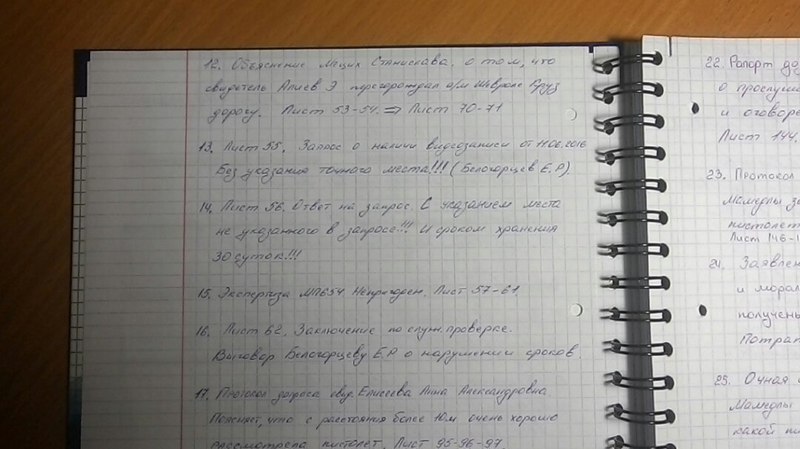 12. Объяснение Мецих Станислава. о том, что
свидетель Алиев Э перегораживал а/м Шевроле Круз
дорогу. Лист 53-54. => Лист 70-71
13. Лист 55, Запрос о наличии видеозаписи от 11.06.2016
Без указания точного места!!! (Белогорцев Е.Р).
14. Лист 56. Ответ на запрос. С указанием места
не указанного в запросе!!! И сроком хранения
30 суток!!!
15. Экспертиза МП654 Непригоден. Лист 57-61
16. Лист 62. Заключение по служ. проверке.
Выговор Белогорцеву Е.Р о нарушении сроков.
17. Протокол допроса свид. Елисеева Анна Александровна
Поясняет, что с расстояния более 10м очень хорошо
рассмотрела пистолет. Лист 95-96-97.
22. Рапорт
о прослуш
и оговоре
Лист 144,
23. Протокол
Мамедлы
пистолет
Лист 146-1
24. Заявлен
и морал
получены
Потрат
25. Очная
Мамедлы
какой пи